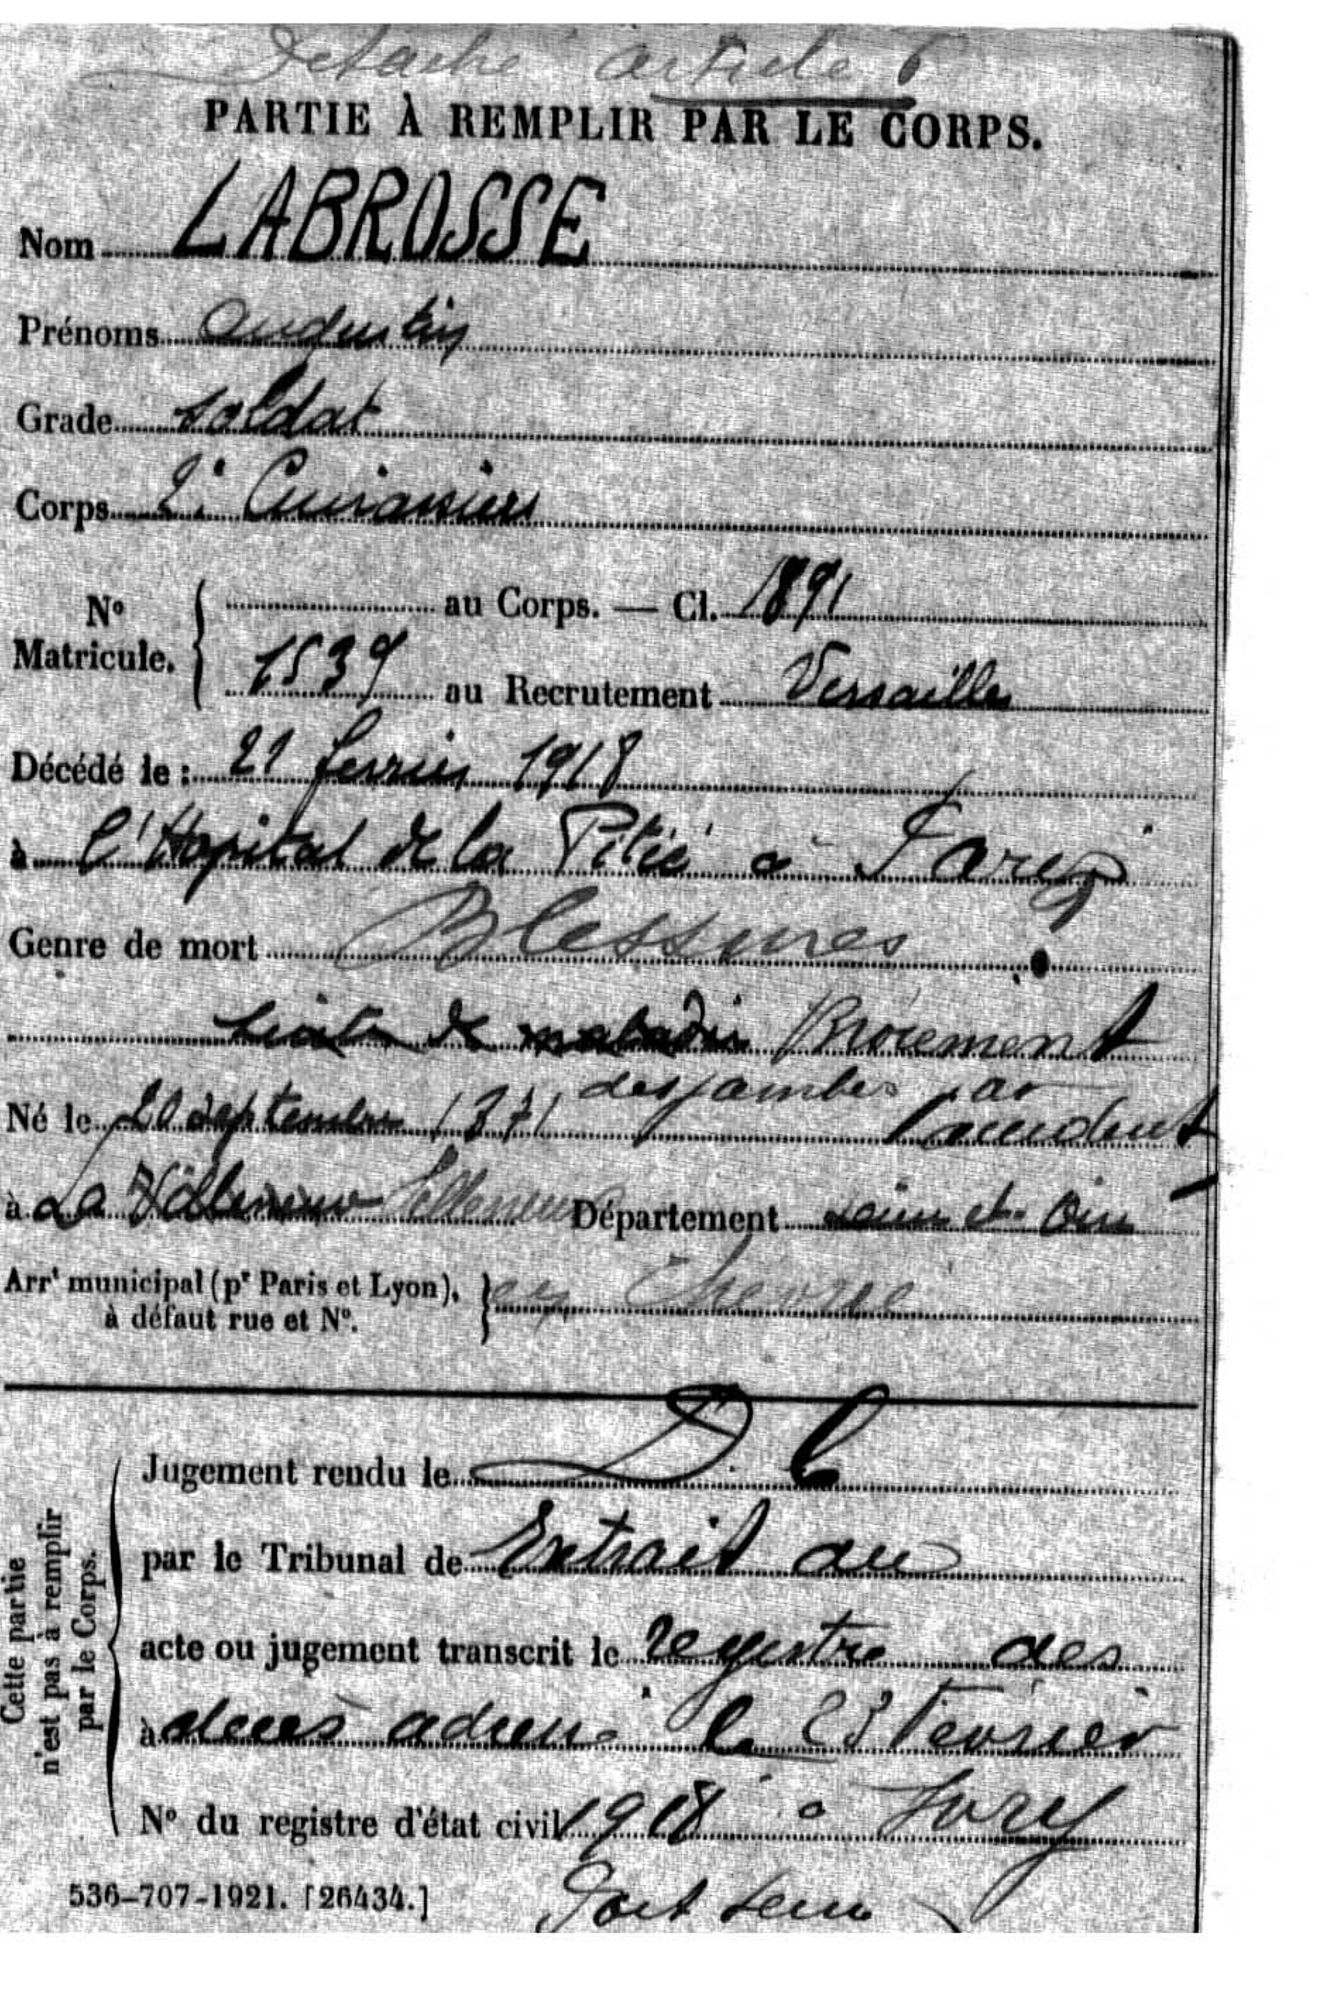 Détaché article 6
PARTIE À REMPLIR PAR LE CORPS.
Nom LABROSSE
Prénoms Augustin
Grade soldat
Corps 2e Cuirassiers
N° Matricule. { au Corps. — Cl. 1891
1539 au Recrutement Versailles
Décédé le : 21 fevrier 1918
à l'Hopital de la Pitié à
Genre de mort Blessures
suites de maladie Broiement
des jambes par
Né le 20 septembre 1871 accident
à La Villeneuve Villeneuve Département Seine et Oise
Arrt municipal (pr Paris et Lyon), à défaut rue et N°. } en Chevrie
Cette partie n'est pas à remplir par le Corps.
Jugement rendu le D. C
par le Tribunal de Extrait du
acte ou jugement transcrit le registre des
à décès adressé le 23 Février
N° du registre d'état civil 1918 à Ivry
536-707-1921. [26434.]